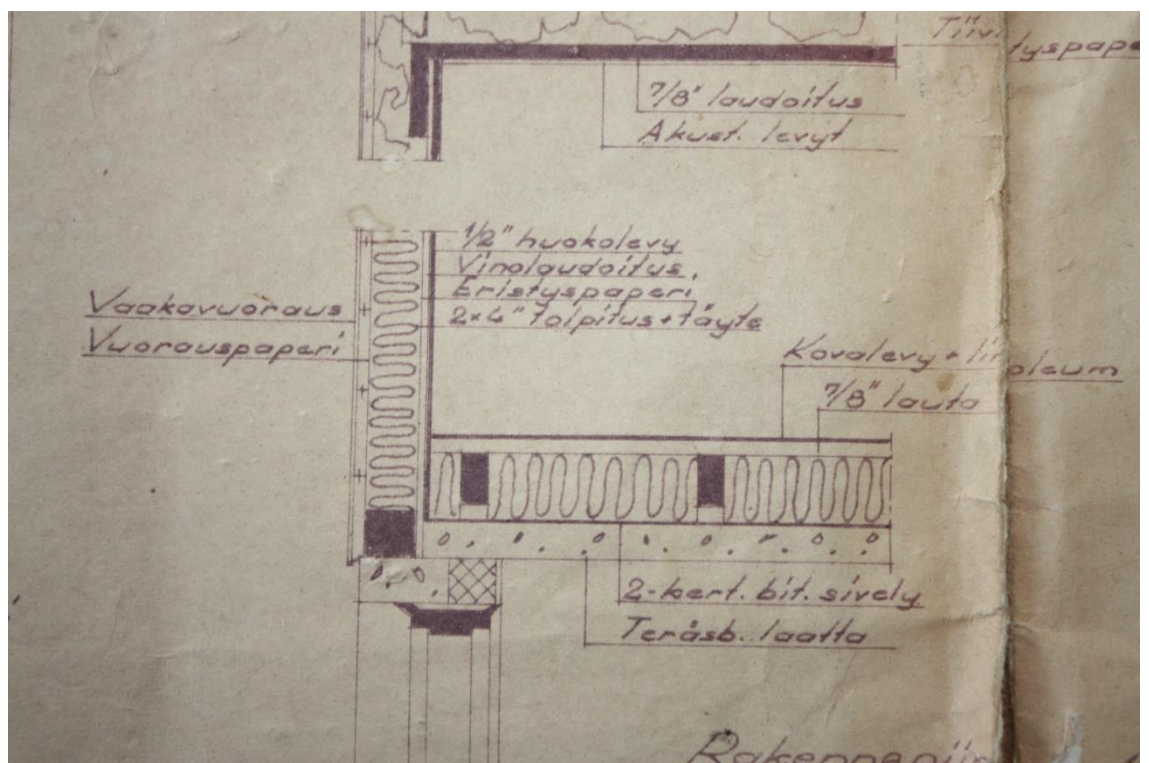 7/8" laudoitus
Akust. levyt
1/2" huokolevy
Vinolaudoitus
Eristyspaperi
2×4" tolpitus + täyte
Vaakavuoraus
Vuorauspaperi
Kovalevy +
7/8" lauta
2-kert. bit. sively
Teräsb. laatta